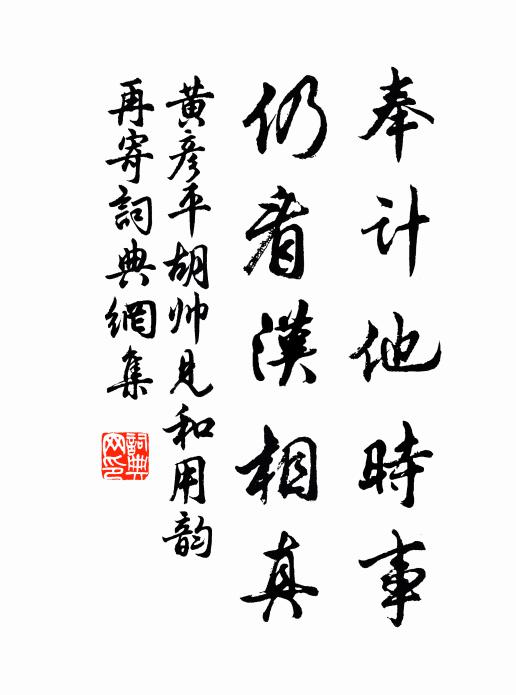 奉计他時事
仍看漢相真
黄彦平胡帅見和用韵
再寄詞典網集
詞典网印